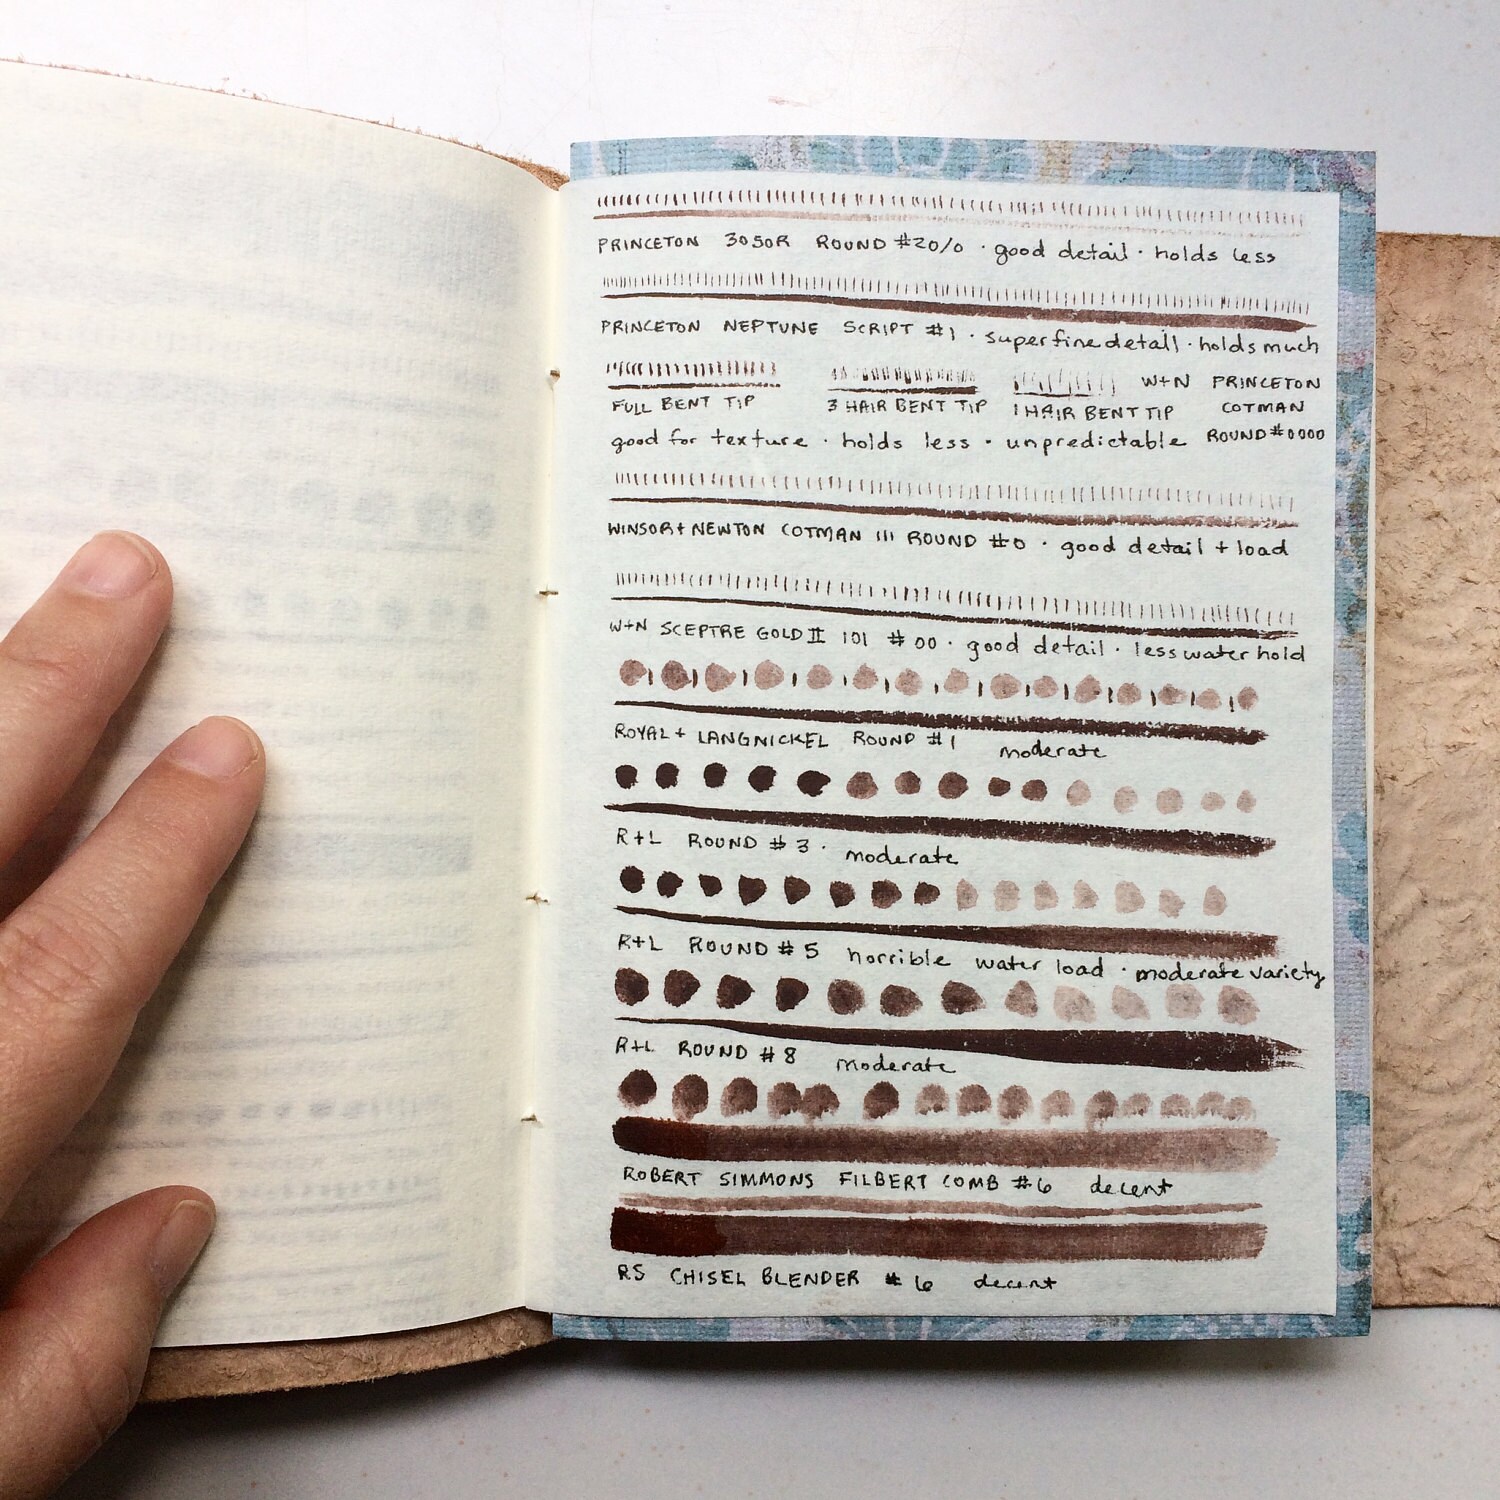 PRINCETON 3050R ROUND #20/0 · good detail · holds less
PRINCETON NEPTUNE SCRIPT #1 · superfine detail · holds much
FULL BENT TIP 3 HAIR BENT TIP 1 HAIR BENT TIP W+N PRINCETON
COTMAN
good for texture · holds less · unpredictable ROUND #0000
WINSOR + NEWTON COTMAN 111 ROUND #0 · good detail + load
W+N SCEPTRE GOLD II 101 #00 · good detail · less water hold
ROYAL + LANGNICKEL ROUND #1 moderate
R+L ROUND #3 · moderate
R+L ROUND #5 horrible water load · moderate variety
R+L ROUND #8 moderate
ROBERT SIMMONS FILBERT COMB #6 decent
RS CHISEL BLENDER #6 decent